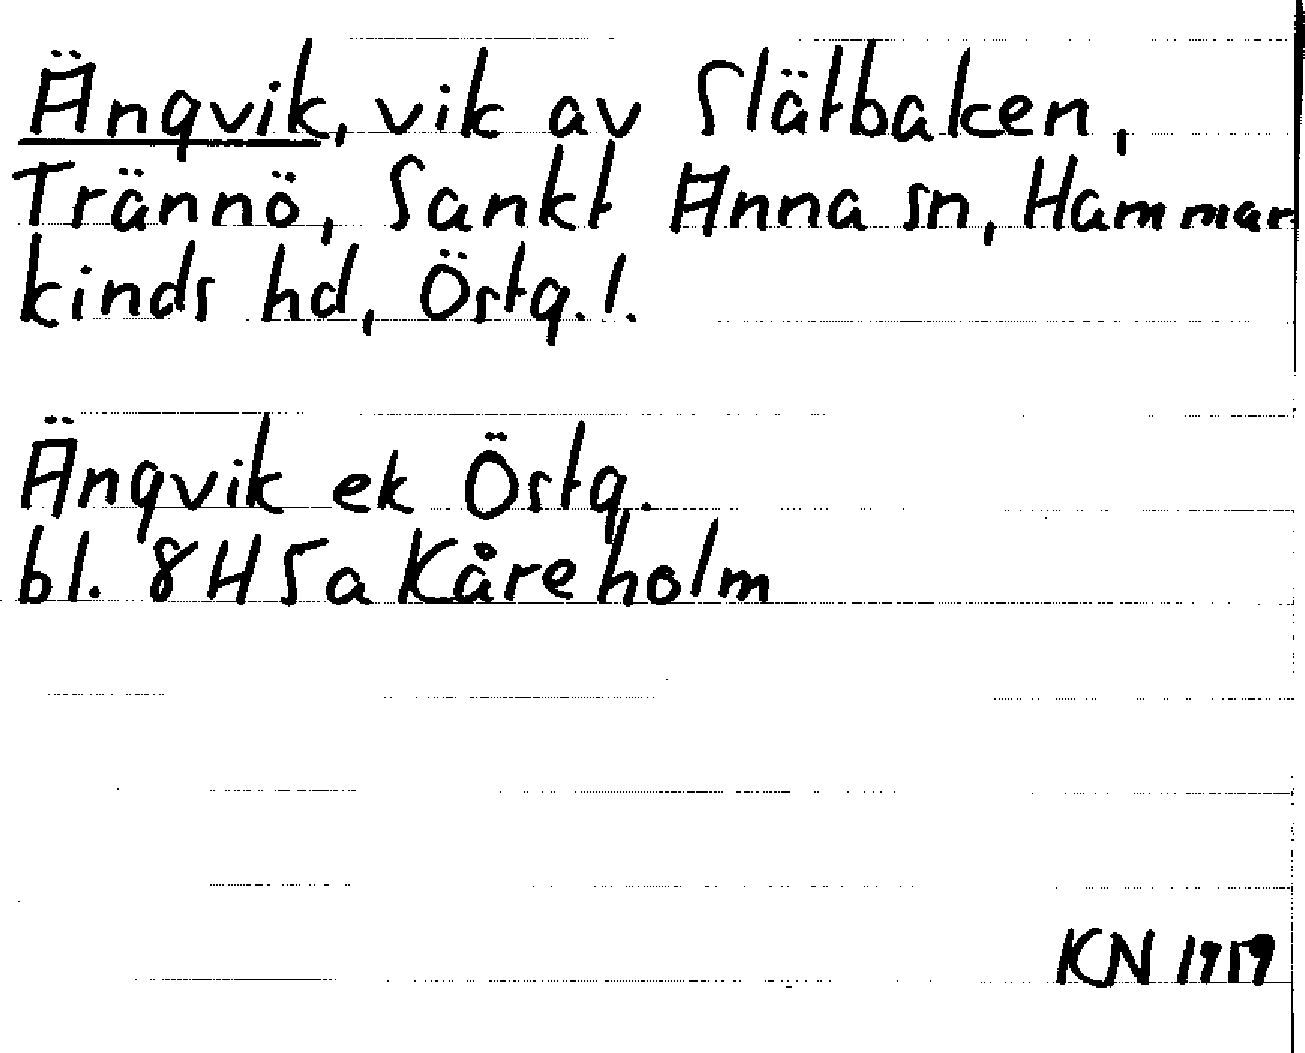 Ängvik, vik av Slätbaken,
Trännö, Sankt Anna sn, Hammar
kinds hd, Östg. l.
Ängvik ek Östg.
bl. 8H5a Kåreholm
KN